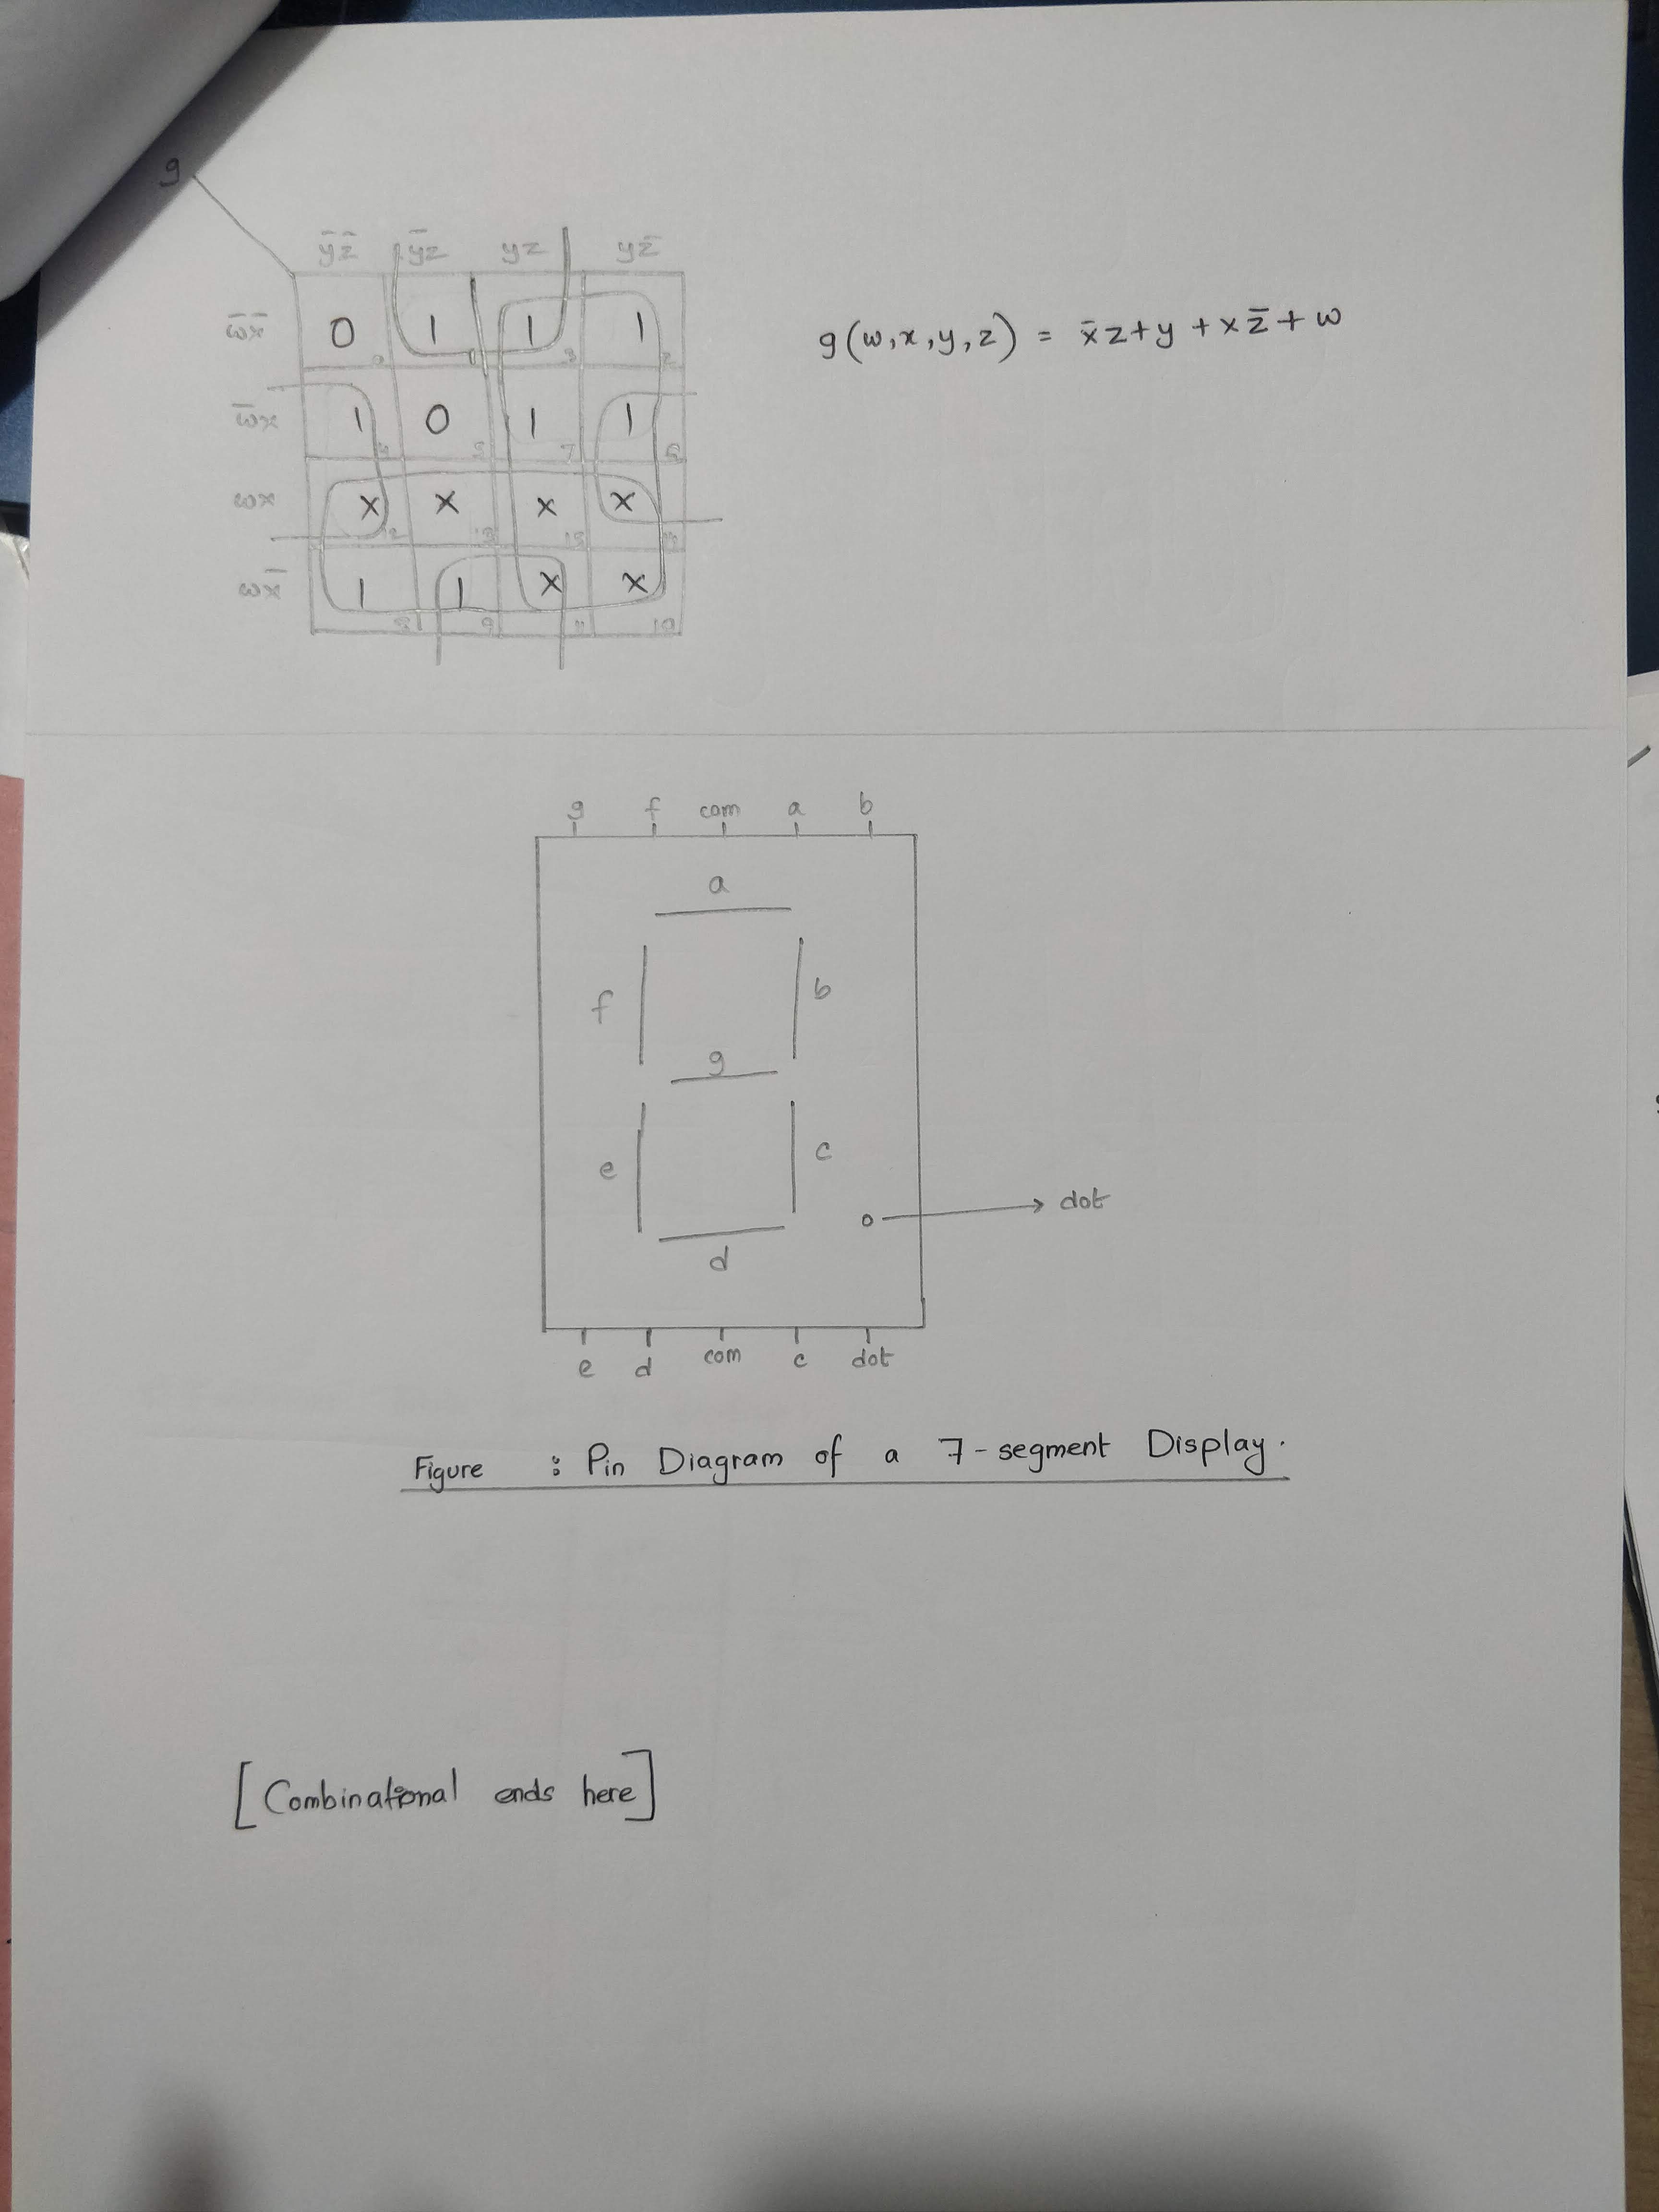 g
y̅z̅ y̅z yz yz̅
w̅x̅ 0 1 1 1
0 1 3 2
w̅x 1 0 1 1
5 7 6
wx x x x x
12 13 15
wx̅ 1 1 x x
8 9 11 10
g(w,x,y,z) = x̅z+y+xz̅+w
g f com a b
a
f b
g
e c
dot
d
e d com c dot
Figure : Pin Diagram of a 7-segment Display.
[Combinational ends here]